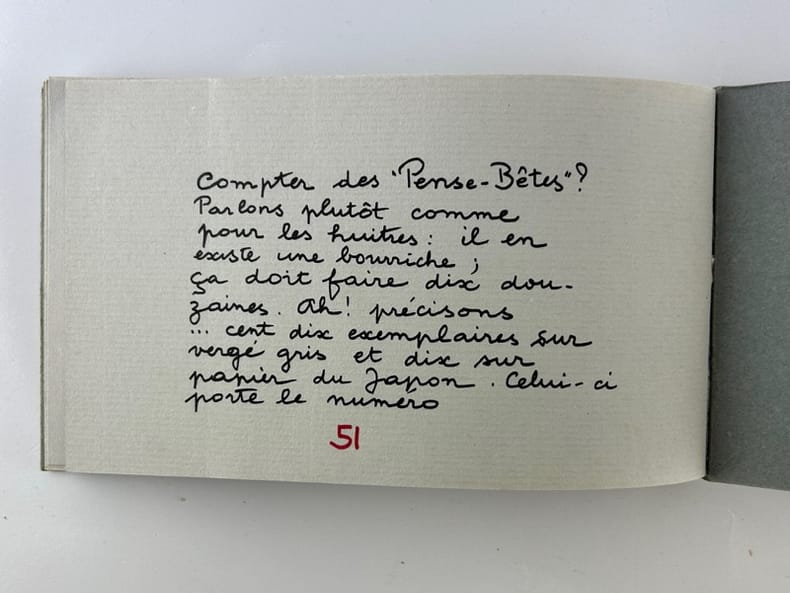 Compter des "Pense-Bêtes"?
Parlons plutôt comme
pour les huitres : il en
existe une bourriche ;
ça doit faire dix dou-
zaines. Ah! précisons
... cent dix exemplaires sur
vergé gris et dix sur
papier du Japon. Celui-ci
porte le numéro
51